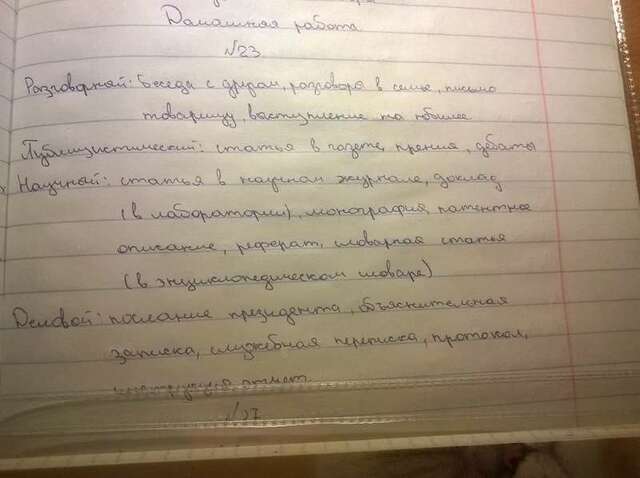 Домашняя работа
№23
Разговорный: беседа с другом, разговор в семье, письмо
товарищу, выступление на юбилее
Публицистический: статья в газете, прения, дебаты
Научный: статья в научном журнале, доклад
(в лаборатории), монография, патентное
описание, реферат, словарная статья
(в энциклопедическом словаре)
Деловой: послание президента, объяснительная
записка, служебная переписка, протокол,